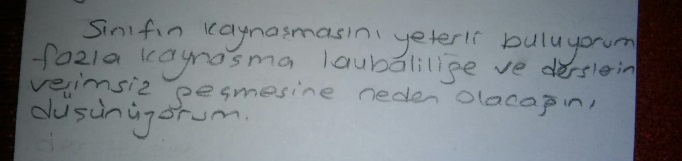 Sınıfın kaynaşmasını yeterli buluyorum
fazla kaynaşma laubaliliğe ve derslerin
verimsiz geçmesine neden olacağını
düşünüyorum.